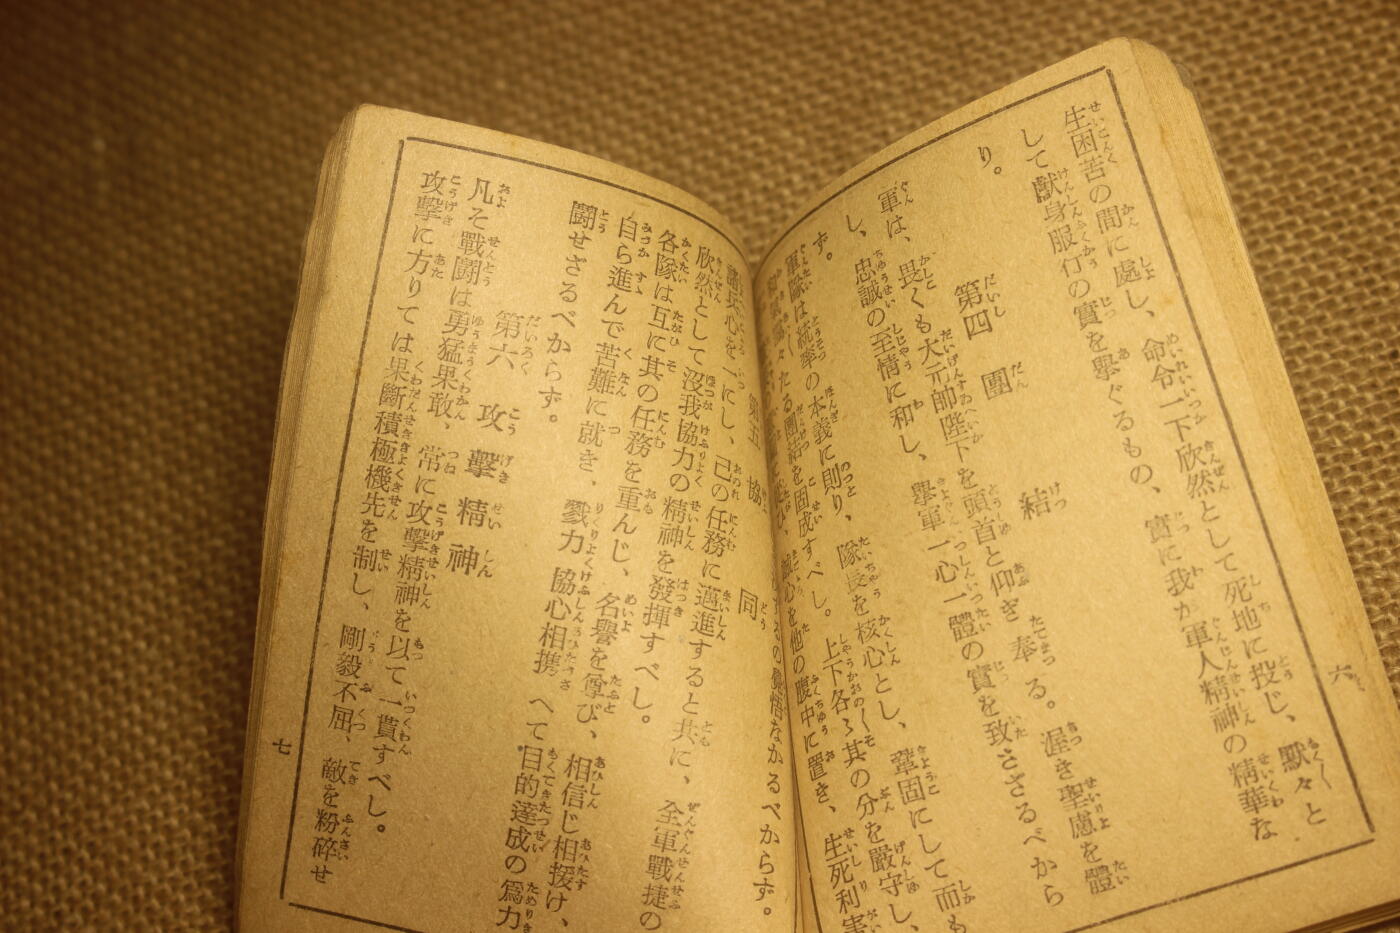 六
生困苦の間に處し、命令一下欣然として死地に投じ、默々と
して獻身服行の實を擧ぐるもの、實に我が軍人精神の精華な
り。
第四 團結
軍は、畏くも大元帥陛下を頭首と仰ぎ奉る。渥き聖慮を體
し、忠誠の至情に和し、擧軍一心一體の實を致さざるべから
ず。
軍隊は統率の本義に則り、隊長を核心とし、鞏固にして而も
たる團結を固成すべし。上下各〻其の分を嚴守し、
心を他の腹中に置き、生死利害
の覺悟なかるべからず。
第五 協同
諸兵心を一にし、己の任務に邁進すると共に、全軍戰捷の
欣然として沒我協力の精神を發揮すべし。
各隊は互に其の任務を重んじ、名譽を尊び、相信じ相援け、
自ら進んで苦難に就き、戮力協心相携へて目的達成の爲力
鬪せざるべからず。
第六 攻擊精神
凡そ戰鬪は勇猛果敢、常に攻擊精神を以て一貫すべし。
攻擊に方りては果斷積極機先を制し、剛毅不屈、敵を粉碎せ
七